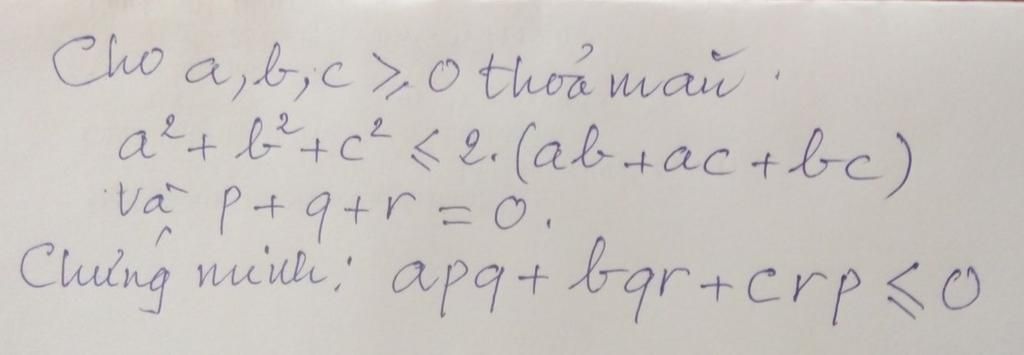 Cho a, b, c ⩾ 0 thoả mãn.
a² + b² + c² ⩽ 2.(ab + ac + bc)
Và p + q + r = 0.
Chứng minh: apq + bqr + crp ⩽ 0